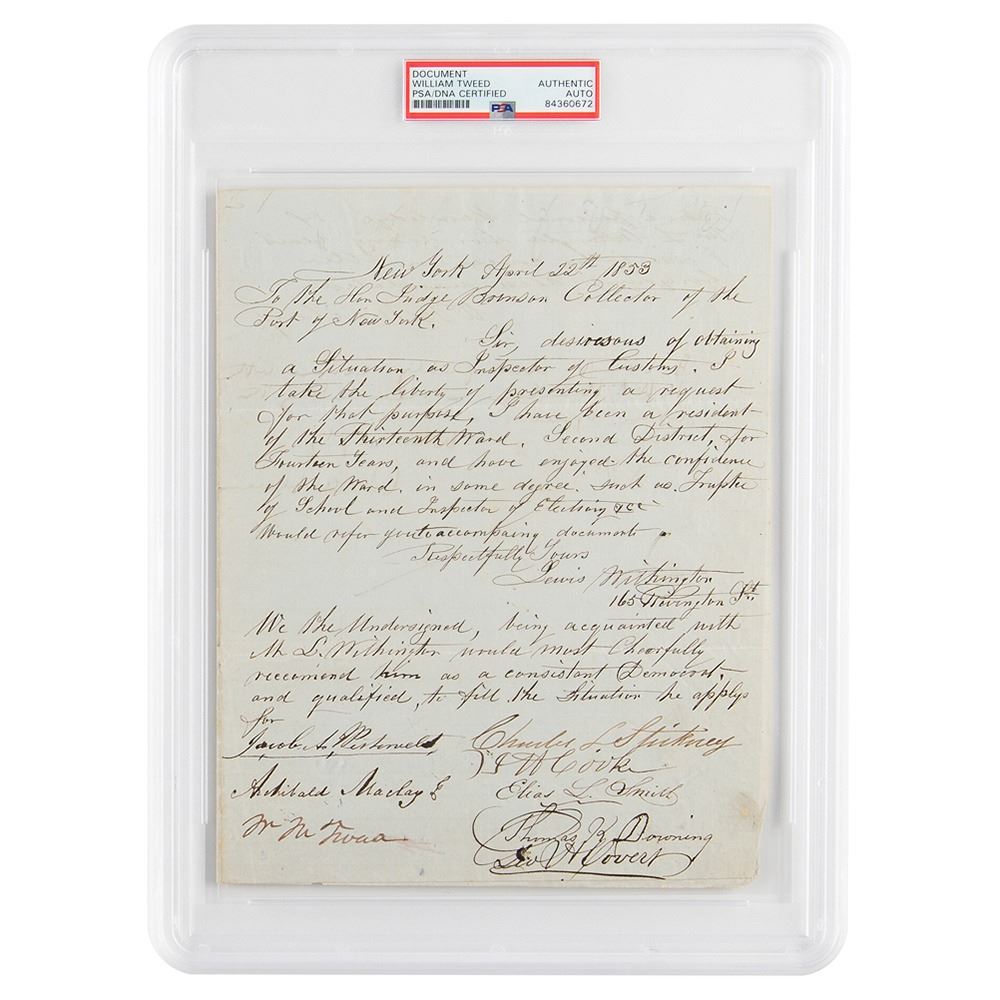 DOCUMENT
WILLIAM TWEED
PSA/DNA CERTIFIED
AUTHENTIC
AUTO
84360672
PSA
New York April 22th 1853
To the Hon Judge Bronson Collector of the
Port of New York.
Sir, desiresous of obtaining
a Situation as Inspector of Customs. I
take the liberty of presenting a request
for that purpose, I have been a resident
of the Thirteenth Ward. Second District, for
Fourteen Years, and have enjoyed the confidence
of the Ward. in some degree. such as. Trustee
of School and Inspector of Election &cc
Would refer you to accompaing documents
Respectfully Yours
Lewis Withington
165 Rivington St.
We the Undersigned, being acquainted with
Mr L. Withington would most Cheerfully
reccomend him as a consistant Democrat,
and qualified, to fill the Situation he applys
for
Jacob A. Westervelt
Charles L Stickney
J H Cooke
Archibald Maclay
Elias L. Smith
Wm M Tweed
Thomas K Downing
Geo H Covert